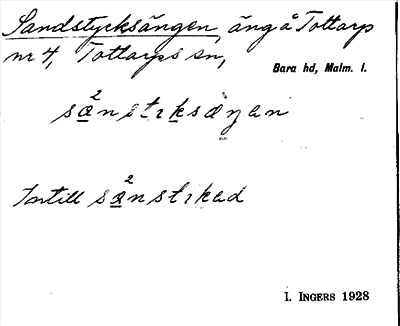 Sandstycksängen, äng å Tottarp
nr 4, Tottarps sn,
Bara hd, Malm. l.
sänstıksæŋan
Intill sänstıkad
I. INGERS 1928